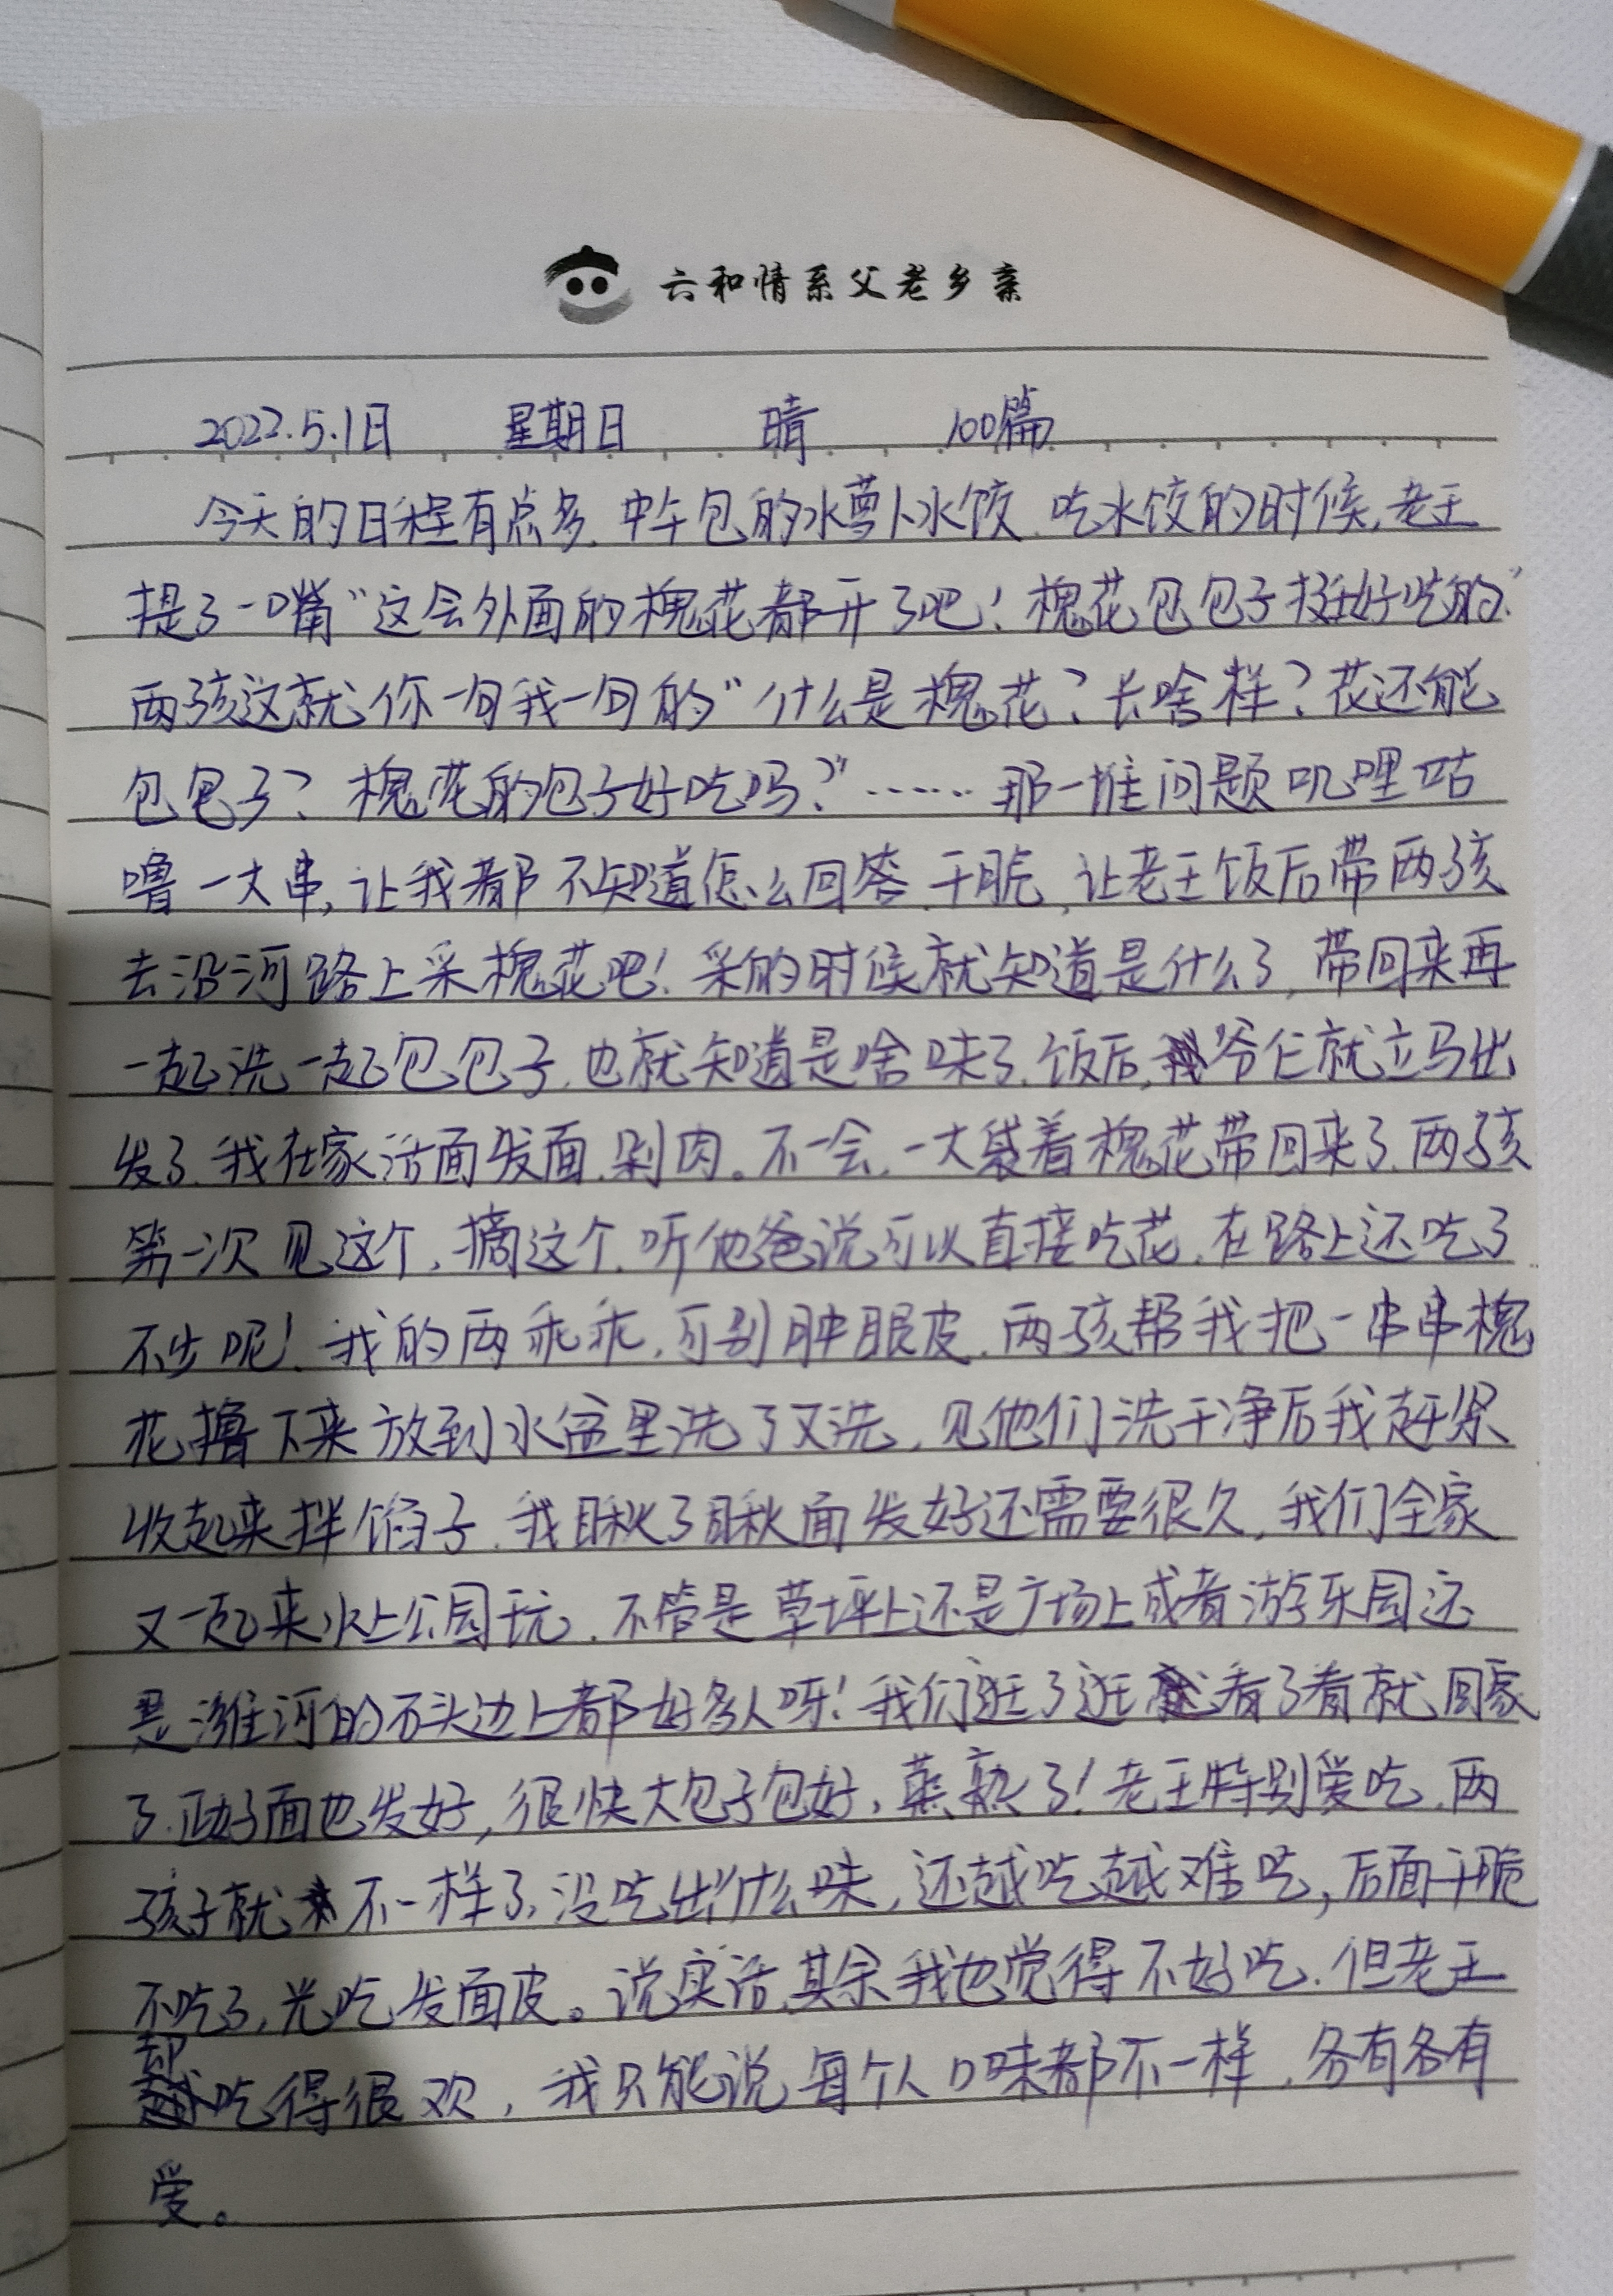 六和情系父老乡亲
2022.5.1日 星期日 晴 100篇
今天的日程有点多.中午包的水萝卜水饺.吃水饺的时候,老王
提了一嘴“这会外面的槐花都开了吧!槐花包包子挺好吃的.”
两孩这就你一句我一句的“什么是槐花?长啥样?花还能
包包子?槐花的包子好吃吗?”……那一堆问题叽哩咕
噜一大串,让我都不知道怎么回答.干脆,让老王饭后带两孩
去沿河路上采槐花吧!采的时候就知道是什么了,带回来再
一起洗一起包包子.也就知道是啥味了.饭后,爷仨就立马出
发了.我在家活面发面.剁肉。不一会.一大袋着槐花带回来了.两孩
第一次见这个,摘这个.听他爸说可以直接吃花.在路上还吃了
不少呢!我的两乖乖,可别肿眼皮.两孩帮我把一串串槐
花撸下来放到水盆里洗了又洗,见他们洗干净后我赶紧
收起来拌馅子.我瞅了瞅面发好还需要很久,我们全家
又一起来水上公园玩.不管是草坪上还是广场上或者游乐园还
是潍河的石头边上都好多人呀!我们逛了逛看了看就回家
了.正好面也发好,很快大包子包好,蒸熟了!老王特别爱吃.两
孩子就不一样了.没吃出什么味,还越吃越难吃,后面干脆
不吃了,光吃发面皮。说实话,其余我也觉得不好吃.但老王
却吃得很欢,我只能说每个人口味都不一样,各有各有
爱。